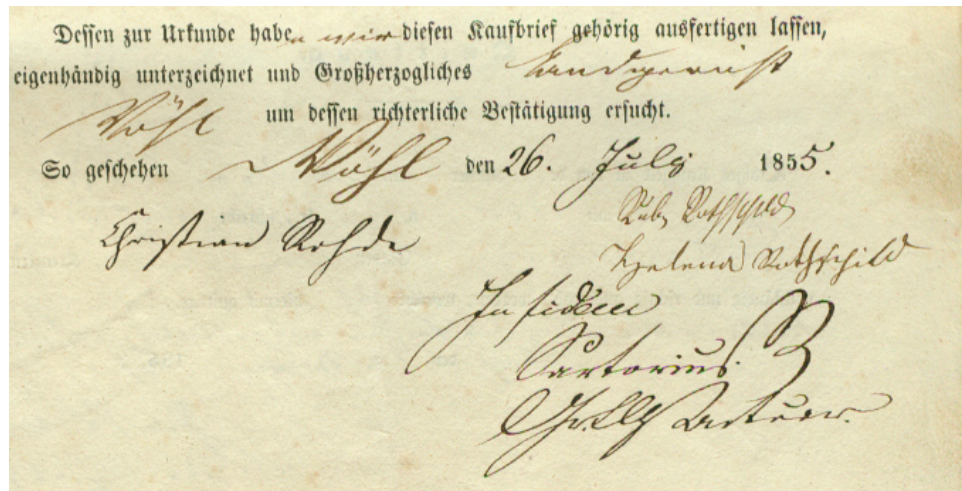 Dessen zur Urkunde haben wir diesen Kaufbrief gehörig ausfertigen lassen,
eigenhändig unterzeichnet und Großherzogliches Landgericht
Vöhl um dessen richterliche Bestätigung ersucht.
So geschehen Vöhl den 26. July 1855.
Rothschild
Christian Rohde
Helena Rothschild
In fidem
Sartorius
Actuar.